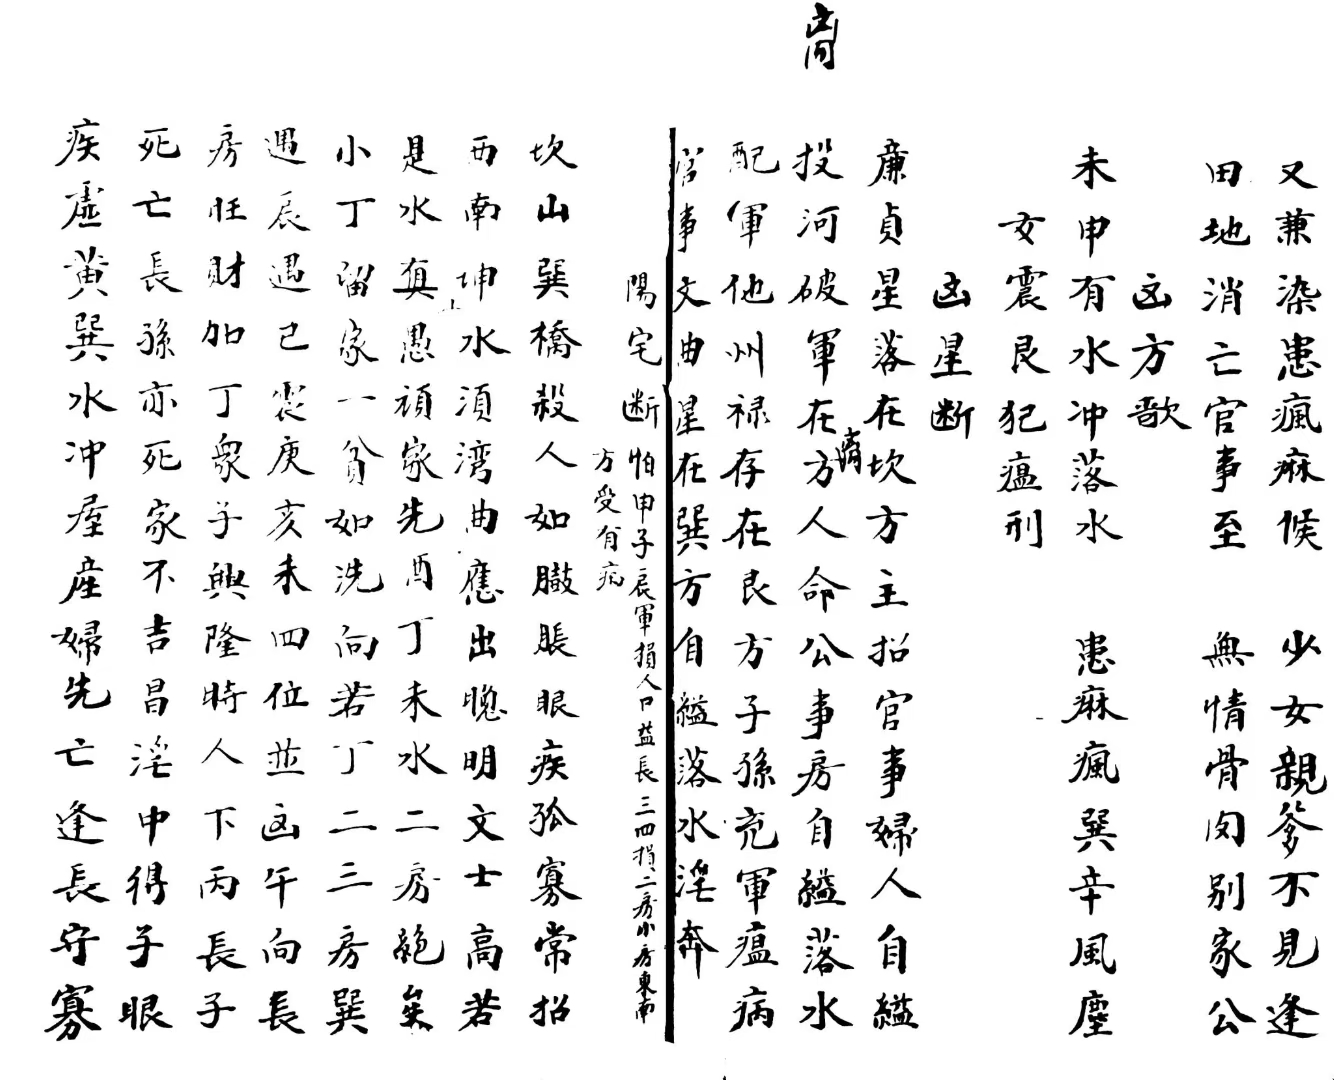 又兼染患瘋麻候　少女親爹不見逢
田地消亡官事至　無情骨肉别家公
凶方歌
未申有水冲落水　患麻瘋巽辛風塵
女震艮犯瘟刑
凶星断
廉貞星落在坎方主招官事婦人自縊
投河破軍在方人命公事房自縊落水
配軍他州禄存在艮方子孫充軍瘟病
官事文曲星在巽方自縊落水淫奔
陽宅断
怕申子辰軍損人口益長三四損二房小房東南
方受有病
坎山巽橋殺人如臌脹眼疾孤寡常招
西南坤水須湾曲應出聰明文士高若
是水真愚頑家先酉丁未水二房絶矣
小丁留家一貧如洗向若丁二三房巽
遇辰遇已震庚亥未四位並凶午向長
房旺財加丁衆子興隆時人下丙長子
死亡長孫亦死家不吉昌淫中得子眼
疾虚黄巽水冲屋産婦先亡逢長守寡